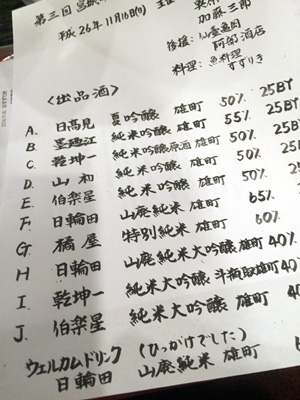 第三回 宮城
平成26年11月16日 主
加藤三郎
後援:仙臺
阿部酒店
料理:魚料理
すずりき
〈出品酒〉
A. 日高見 夏吟醸 雄町 50% 25BY
B. 墨廼江 純米吟醸 雄町 55% 25BY
C. 乾坤一 純米吟醸原酒 雄町 50% 25BY
D. 山和 純米吟醸 雄町 50% 25B
E. 伯楽星 純米吟醸 雄町 50% 25
F. 日輪田 山廃純米 雄町 65% 2
G. 橘屋 特別純米 雄町 60%
H 日輪田 山廃純米大吟醸 雄町 40%
I. 乾坤一 純米大吟醸 斗瓶取雄町 40%
J. 伯楽星 純米大吟醸 雄町 40%
ウェルカムドリンク (ひっかけでした)
日輪田 山廃純米 雄町